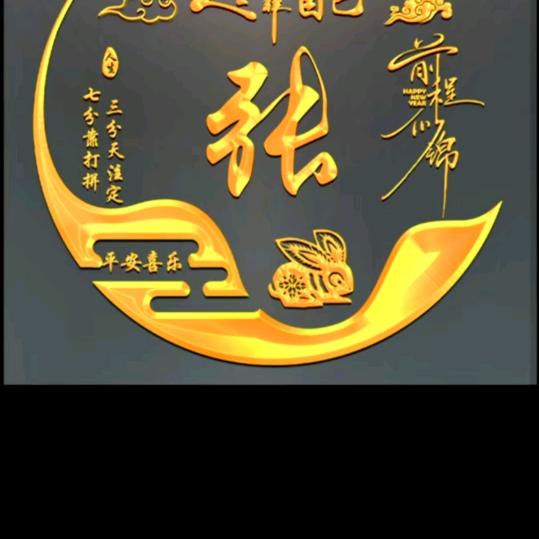 自己
张
人生
三分天注定
七分靠打拼
前程
HAPPY
NEW
YEAR
似锦
平安喜乐